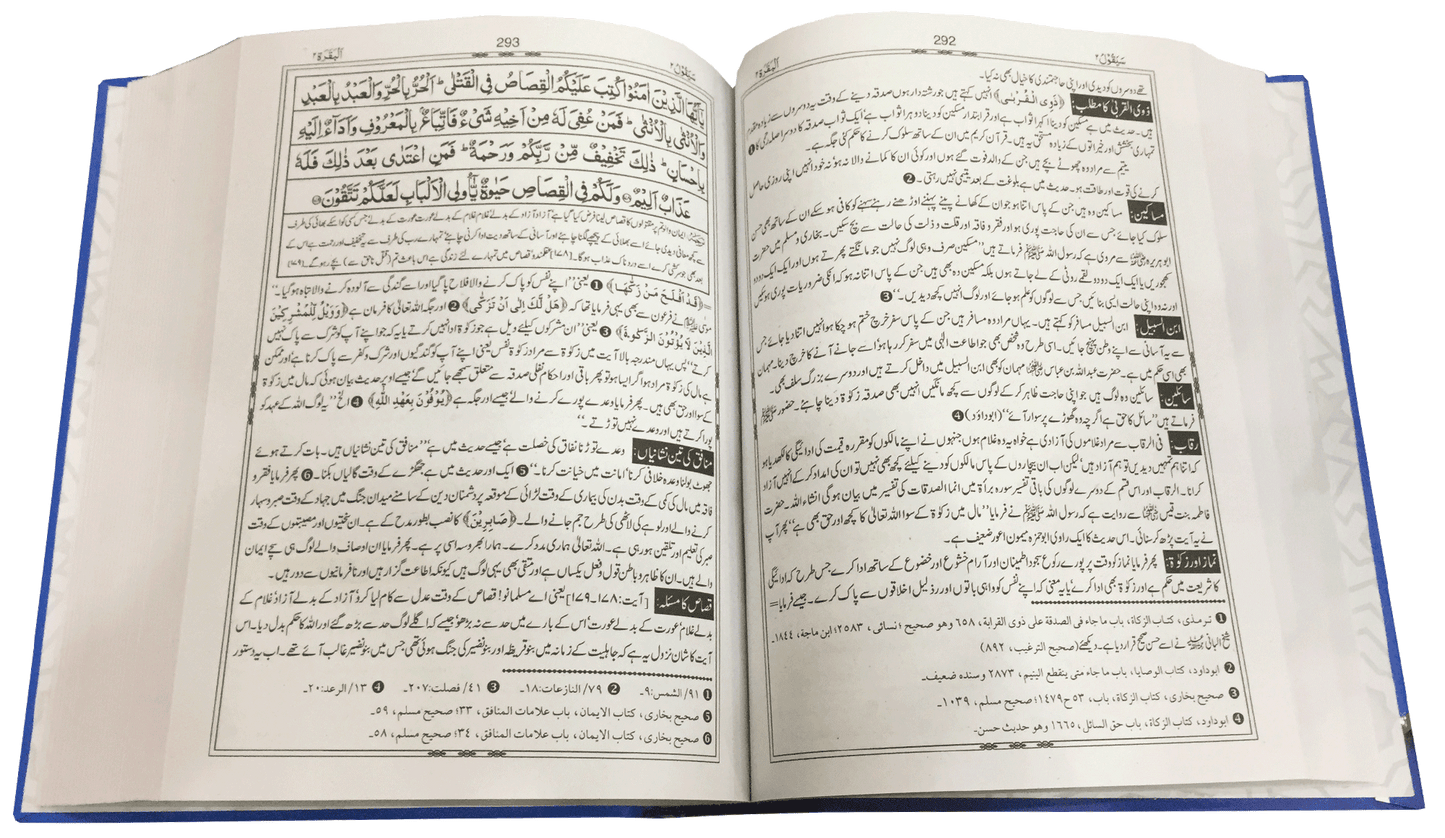 سَیَقُوْلُ ۲
292
اَلْبَقَرَۃ ۲
تھے دوسروں کو دیدی اور اپنی حاجتمندی کا خیال بھی نہ کیا۔
ذوی القربیٰ کا مطلب: ﴿ذَوِی الْقُرْبٰی﴾ انہیں کہتے ہیں جو رشتہ دار ہوں صدقہ دینے کے وقت یہ دوسروں سے زیادہ مقدم
ہیں۔ حدیث میں ہے مسکین کو دینا اکہرا ثواب ہے اور قرابتدار مسکین کو دینا دوہرا ثواب ہے' ایک ثواب صدقہ کا دوسرا صلہ رحمی کا ❶
تمہاری بخشش اور خیراتوں کے زیادہ مستحق یہ ہیں۔ قرآن کریم میں ان کے ساتھ سلوک کرنے کا حکم کئی جگہ ہے۔
یتیم سے مراد وہ چھوٹے بچے ہیں جن کے والد فوت گئے ہوں اور کوئی ان کا کمانے والا نہ ہو' نہ خود انہیں اپنی روزی حاصل
کرنے کی قوت اور طاقت ہو۔ حدیث میں ہے بلوغت کے بعد یتیمی نہیں رہتی۔ ❷
مساکین: مساکین وہ ہیں جن کے پاس اتنا ہو جو ان کے کھانے پینے پہننے اوڑھنے رہنے سہنے کو کافی ہو سکے ان کے ساتھ بھی حسن
سلوک کیا جائے جس سے ان کی حاجت پوری ہو اور فقر و فاقہ اور قلت و ذلت کی حالت سے بچ سکیں۔ بخاری و مسلم میں حضرت
ابو ہریرہ رضی اللہ عنہ سے مروی ہے کہ رسول اللہ ﷺ فرماتے ہیں "مسکین صرف وہی لوگ نہیں جو مانگتے پھرتے ہوں اور ایک ایک دو دو
کھجوریں یا ایک ایک دو دو لقمے روٹی کے لے جاتے ہوں بلکہ مسکین وہ بھی ہیں جن کے پاس اتنا نہ ہو کہ انکی ضروریات پوری ہو سکیں
اور نہ وہ اپنی حالت ایسی بنائیں جس سے لوگوں کو علم ہو جائے اور لوگ انہیں کچھ دیدیں۔" ❸
ابن السبیل: ابن السبیل مسافر کو کہتے ہیں۔ یہاں مراد وہ مسافر ہیں جن کے پاس سفر خرچ ختم ہو چکا ہو انہیں اتنا دیا جائے جس
سے یہ آسانی سے اپنے وطن پہنچ جائیں۔ اسی طرح وہ شخص بھی جو اطاعت الٰہی میں سفر کر رہا ہو' اسے جانے آنے کا خرچ دینا۔ مہمان
بھی اسی حکم میں ہے۔ حضرت عبداللہ بن عباس رضی اللہ عنہ مہمان کو بھی ابن السبیل میں داخل کرتے ہیں اور دوسرے بزرگ سلف بھی۔
سائلین: سائلین وہ لوگ ہیں جو اپنی حاجت ظاہر کر کے لوگوں سے کچھ مانگیں انہیں بھی صدقہ زکوٰۃ دینا چاہئے۔ حضور ﷺ
فرماتے ہیں "سائل کا حق ہے اگرچہ وہ گھوڑے پر سوار آئے" (ابوداؤد) ❹
رقاب: فی الرقاب سے مراد غلاموں کی آزادی ہے خواہ یہ وہ غلام ہوں جنہوں نے اپنے مالکوں کو مقررہ قیمت کی ادائیگی کا لکھ دیا ہو
کہ اتنا ہم تمہیں دیدیں تو ہم آزاد ہیں' لیکن اب ان بیچاروں کے پاس مالکوں کو دینے کیلئے کچھ بھی نہیں تو ان کی امداد کر کے انہیں آزاد
کرانا۔ الرقاب اور اس قسم کے دوسرے لوگوں کی باقی تفسیر سورہ برأۃ میں انما الصدقات کی تفسیر میں بیان ہوگی انشاء اللہ۔ حضرت
فاطمہ بنت قیس سے روایت ہے کہ رسول اللہ ﷺ نے فرمایا "مال میں زکوٰۃ کے سوا اللہ تعالیٰ کا کچھ اور حق بھی ہے" پھر آپ
نے یہ آیت پڑھ کر سنائی۔ اس حدیث کا ایک راوی ابوحمزہ میمون اعور ضعیف ہے۔
نماز اور زکوٰۃ: پھر فرمایا نماز کو وقت پر پورے رکوع سجود' اطمینان اور آرام خشوع اور خضوع کے ساتھ ادا کرے جس طرح کہ ادائیگی
کا شریعت میں حکم ہے اور زکوٰۃ بھی ادا کرے' یا یہ معنی کہ اپنے نفس کو واہی باتوں اور رذیل اخلاقوں سے پاک کرے۔ جیسے فرمایا =
❶ ترمذی، کتاب الزکاة، باب ما جاء فی الصدقة علی ذوی القرابة، ٦٥٨ وهو صحیح؛ نسائی، ٢٥٨٣؛ ابن ماجة، ١٨٤٤۔
شیخ البانی نے اسے حسن صحیح قرار دیا ہے۔ دیکھئے (صحیح الترغیب، ٨٩٢)
❷ ابوداود، کتاب الوصایا، باب ما جاء متی ینقطع الیتیم، ٢٨٧٣ وسنده ضعیف۔
❸ صحیح بخاری، کتاب الزکاة، باب ٥٣ ح١٤٧٩؛ صحیح مسلم، ١٠٣٩۔
❹ ابوداود، کتاب الزکاة، باب حق السائل، ١٦٦٥ وهو حدیث حسن۔
سَیَقُوْلُ ۲
293
اَلْبَقَرَۃ ۲
یٰۤاَیُّهَا الَّذِیْنَ اٰمَنُوْا كُتِبَ عَلَیْكُمُ الْقِصَاصُ فِی الْقَتْلٰى ؕ اَلْحُرُّ بِالْحُرِّ وَالْعَبْدُ بِالْعَبْدِ
وَالْاُنْثٰى بِالْاُنْثٰى ؕ فَمَنْ عُفِیَ لَهٗ مِنْ اَخِیْهِ شَیْءٌ فَاتِّبَاعٌۢ بِالْمَعْرُوْفِ وَاَدَآءٌ اِلَیْهِ
بِاِحْسَانٍ ؕ ذٰلِكَ تَخْفِیْفٌ مِّنْ رَّبِّكُمْ وَرَحْمَةٌ ؕ فَمَنِ اعْتَدٰى بَعْدَ ذٰلِكَ فَلَهٗ
عَذَابٌ اَلِیْمٌ وَلَكُمْ فِی الْقِصَاصِ حَیٰوةٌ یّٰۤاُولِی الْاَلْبَابِ لَعَلَّكُمْ تَتَّقُوْنَ
ایمان والو تم پر مقتولوں کا قصاص لینا فرض کیا گیا ہے' آزاد آزاد کے بدلے غلام غلام کے بدلے عورت عورت کے بدلے' جس کسی کو اسکے بھائی کی طرف
سے کچھ معافی دیدی جائے اسے بھلائی کے پیچھے لگنا چاہئے اور آسانی کے ساتھ دیت ادا کرنی چاہئے' تمہارے رب کی طرف سے یہ تخفیف اور رحمت ہے اس کے
بعد بھی جو سرکشی کرے اسے دردناک عذاب ہوگا۔ [۱۷۸] عقلمندو قصاص میں تمہارے لئے زندگی ہے اس باعث تم (قتل ناحق سے) بچے رہوگے۔ [۱۷۹]
= ﴿قَدْ اَفْلَحَ مَنْ زَكّٰىهَا﴾ ❶ یعنی "اپنے نفس کو پاک کرنے والا فلاح پا گیا اور اسے گندگی سے آلودہ کرنے والا تباہ ہو گیا۔"
موسیٰ نے فرعون سے بھی یہی فرمایا تھا کہ ﴿هَلْ لَّكَ اِلٰى اَنْ تَزَكّٰى﴾ ❷ اور جگہ اللہ تعالیٰ کا فرمان ہے ﴿وَوَیْلٌ لِّلْمُشْرِكِیْنَ
الَّذِیْنَ لَا یُؤْتُوْنَ الزَّكٰوةَ﴾ ❸ یعنی "ان مشرکوں کیلئے ویل ہے جو زکوٰۃ ادا نہیں کرتے یا یہ کہ جو اپنے آپ کو شرک سے پاک نہیں
کرتے" پس یہاں مندرجہ بالا آیت میں زکوٰۃ سے مراد زکوٰۃ نفس یعنی اپنے آپ کو گندگیوں اور شرک و کفر سے پاک کرنا ہے اور ممکن
ہے مال کی زکوٰۃ مراد ہو اگر ایسا ہو تو پھر باقی اور احکام نفلی صدقہ سے متعلق سمجھے جائیں گے' جیسے اوپر حدیث بیان ہوئی کہ مال میں زکوٰۃ
کے سوا اور حق بھی ہیں۔ پھر فرمایا وعدے پورے کرنے والے' جیسے اور جگہ ہے ﴿یُوْفُوْنَ بِعَهْدِ اللّٰهِ﴾ ❹ الخ "یہ لوگ اللہ کے عہد کو
پورا کرتے ہیں اور وعدے نہیں توڑتے۔"
منافق کی تین نشانیاں: وعدے توڑنا نفاق کی خصلت ہے' جیسے حدیث میں ہے "منافق کی تین نشانیاں ہیں۔ بات کرتے ہوئے
جھوٹ بولنا' وعدہ خلافی کرنا' امانت میں خیانت کرنا۔" ❺ ایک اور حدیث میں ہے جھگڑے کے وقت گالیاں بکنا۔ ❻ پھر فرمایا فقر و
فاقہ میں مال کی کمی کے وقت بدن کی بیماری کے وقت لڑائی کے موقعہ پر دشمنان دین کے سامنے میدان جنگ میں جہاد کے وقت صبر و سہار
کرنے والے اور لوہے کی لاٹھی کی طرح جم جانے والے۔ ﴿صَابِرِیْنَ﴾ کا نصب بطور مدح کے ہے۔ ان سختیوں اور مصیبتوں کے وقت
صبر کی تعلیم اور تلقین ہو رہی ہے۔ اللہ تعالیٰ ہماری مدد کرے۔ ہمارا بھروسہ اسی پر ہے۔ پھر فرمایا ان اوصاف والے لوگ ہی سچے ایمان
والے ہیں۔ ان کا ظاہر و باطن قول و فعل یکساں ہے اور متقی بھی یہی لوگ ہیں کیونکہ اطاعت گزار ہیں اور نافرمانیوں سے دور ہیں۔
قصاص کا مسئلہ: [آیت: ۱۷۸۔۱۷۹] یعنی اے مسلمانو! قصاص کے وقت عدل سے کام لیا کرو' آزاد کے بدلے آزاد' غلام کے
بدلے غلام' عورت کے بدلے عورت' اس کے بارے میں حد سے نہ بڑھو' جیسے کہ اگلے لوگ حد سے بڑھ گئے اور اللہ کا حکم بدل دیا۔ اس
آیت کا شان نزول یہ ہے کہ جاہلیت کے زمانہ میں بنو قریظہ اور بنو نضیر کی جنگ ہوئی تھی جس میں بنو نضیر غالب آئے تھے۔ اب یہ دستور
❶ ٩١/ الشمس:٩۔ ❷ ٧٩/ النازعات:١٨۔ ❸ ٤١/ فصلت:٢٠٧۔ ❹ ١٣/ الرعد:٢٠۔
❺ صحیح بخاری، کتاب الایمان، باب علامات المنافق، ٣٣؛ صحیح مسلم، ٥٩۔
❻ صحیح بخاری، کتاب الایمان، باب علامات المنافق، ٣٤؛ صحیح مسلم، ٥٨۔